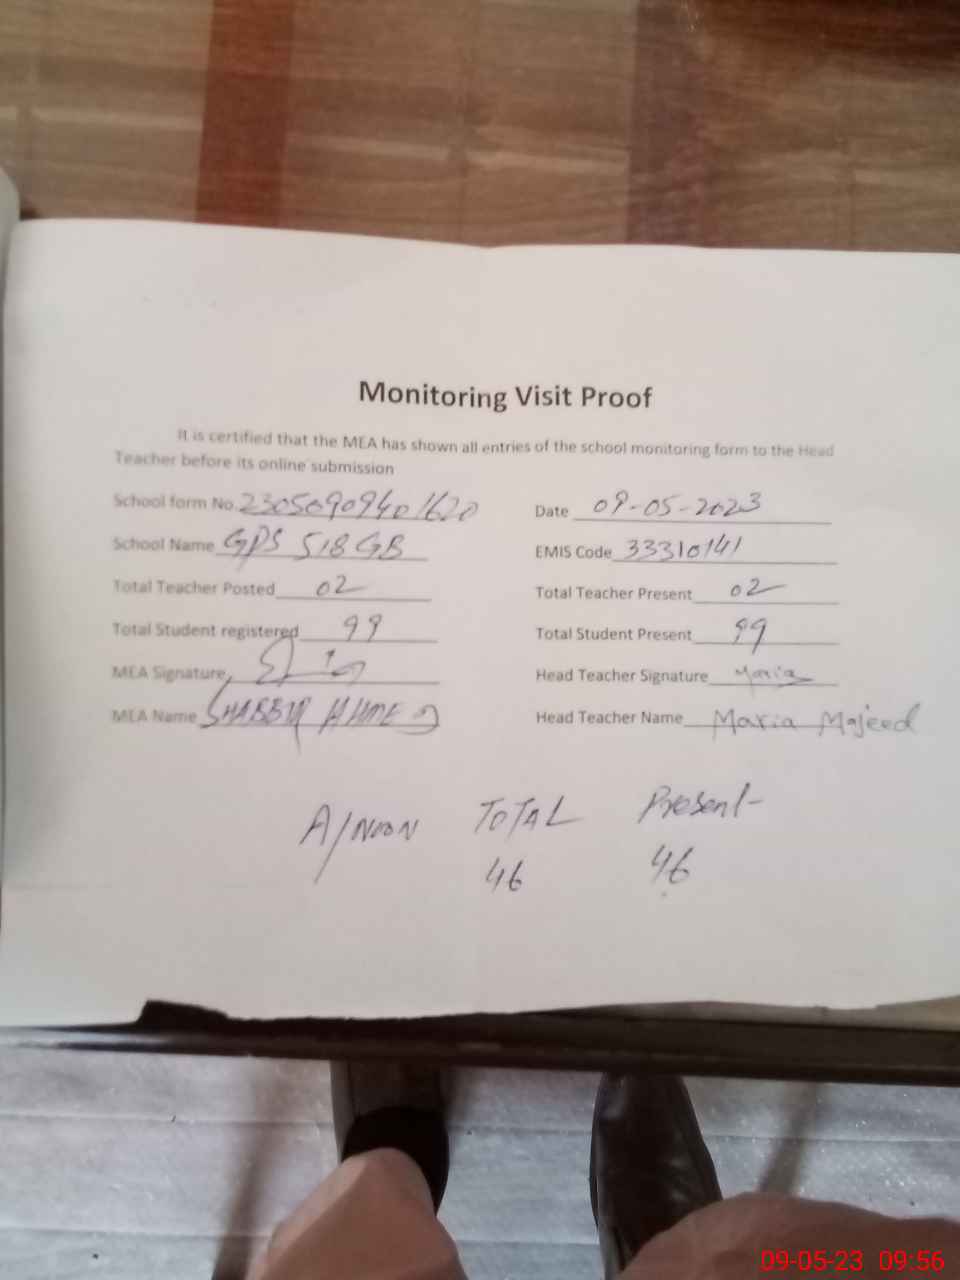 Monitoring Visit Proof
It is certified that the MEA has shown all entries of the school monitoring form to the Head
Teacher before its online submission
School form No. 23050909401620 Date 09-05-2023
School Name GPS 518 GB EMIS Code 33310141
Total Teacher Posted 02 Total Teacher Present 02
Total Student registered 99 Total Student Present 99
MEA Signature Head Teacher Signature Maria
MEA Name SHABBIR AHMED Head Teacher Name Maria Majeed
A/NOON TOTAL Present
46 46
09-05-23 09:56